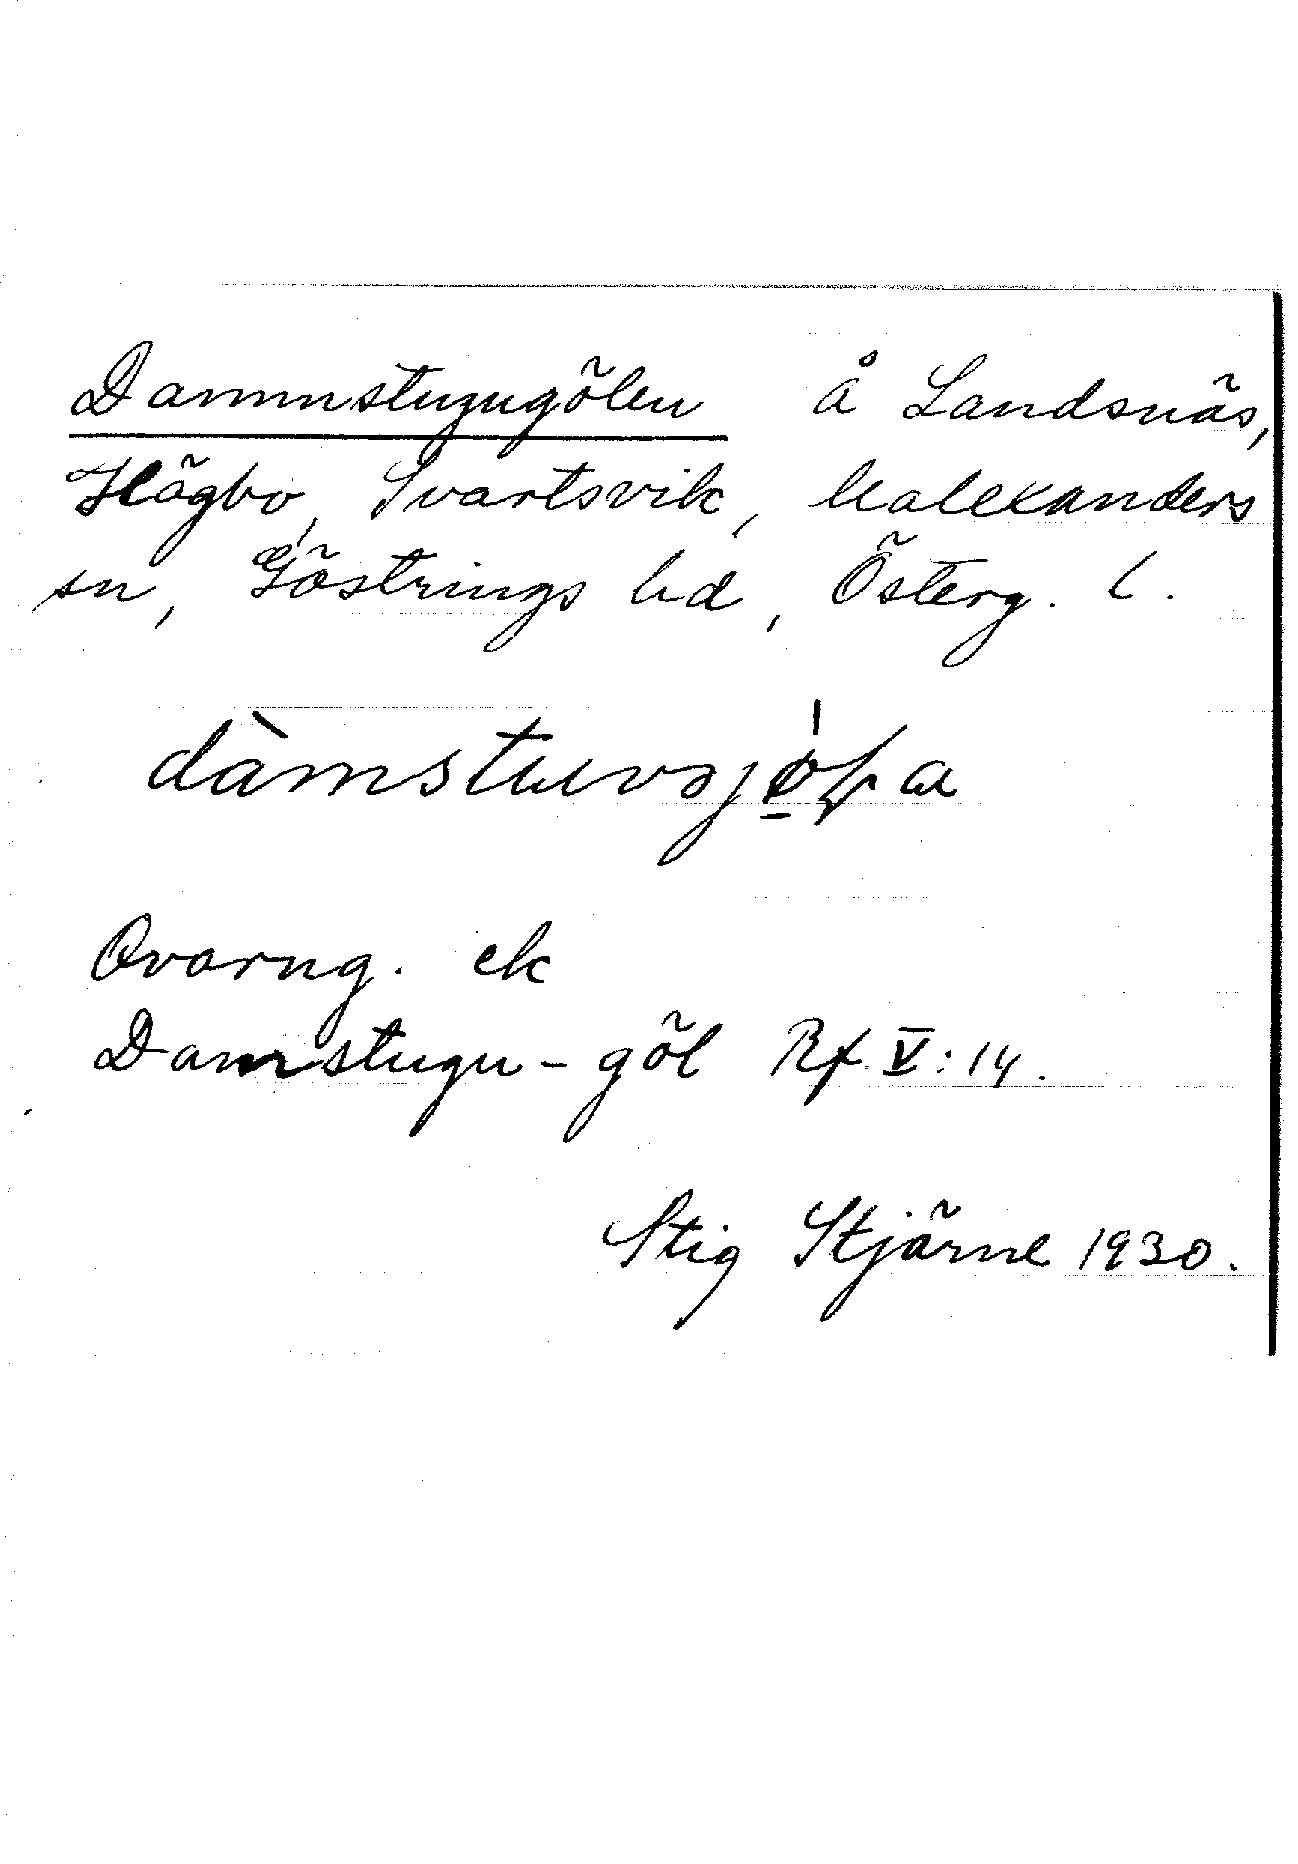 Dammstugugölen å Landsnäs,
Hägbo, Svartsvik, Malexanders
sn, Göstrings hd, Österg. l.
Ovarng. ek
Damstugu-göl Rf V:14.
Stig Stjärne 1930.